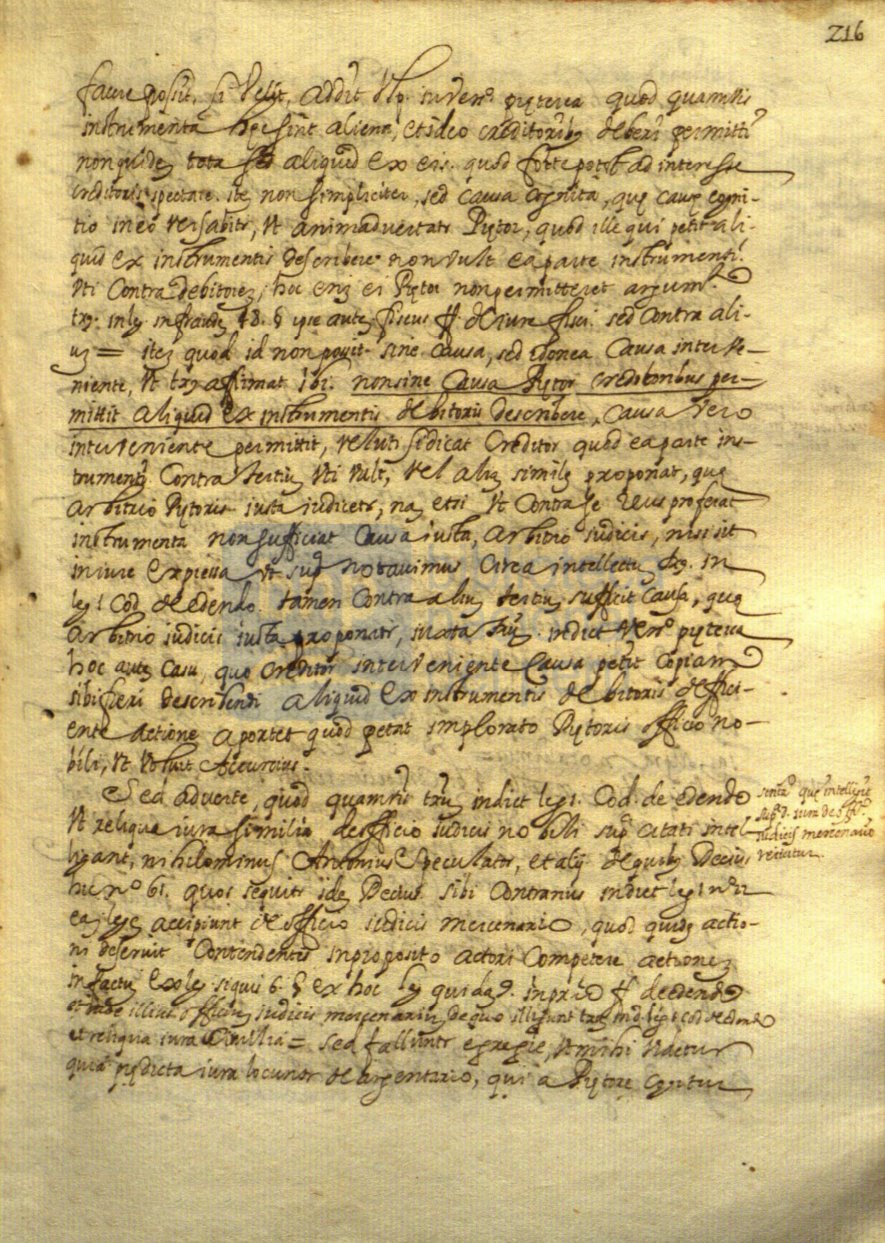 216
facere possit, si velit, addit Ulp. in vers. pręterea quod quamvis
instrumenta hęc sint aliena, et ideo creditoribus deberi permitti
non quidem tota sed aliquid ex eis. quod forte potest ad interesse
creditoris spectare. itē non simpliciter, sed causa cognita, quę causę cogni-
tio in eo versabitr, ut animadvertatr Pręt͞or, quod ille qui petit ali-
quid ex instrumentis describere non vult ea parte instrumenti
uti contra debitorez, hoc eniz ei Prętor non permitteret argum.
tx. in leg. in fraudem 48. § ipse autez fiscus ff. de iure fisci. sed contra ali-
uz = itez quod id non possit sine causa, sed idonea causa interve-
niente, ut tx. affirmat ibi. non sine causa Prętor creditoribus per-
mittit aliquid ex instrumentis debitoris describere, causa vero
interveniente permittit, veluti si dicat Creditor quod ea parte ins-
trumentj contra tertiuz uti vult, vel aliuz similez proponat, quę
arbitrio Prętoris iusta iudicetr, naz etsi ut contra se Reus proferat
instrumenta non sufficiat causa iusta, arbitrio iudicis, nisi sit
in iure expressa ut sup notavimus circa intellectuz tx. in
leg. 1 Cod. de edendo. tamen contra aliuz tertiuz sufficit causa, quę
arbitrio iudicis iusta proponatr, iuxta txuz. in dict. vers. pręterea
hoc autez casu, quo creditor interveniente causa petit copiam
sibi fieri describendi aliquid ex instrumentis debitoris defici-
ente actione oportet quod petat implorato Prętoris officio no-
bili, ut voluit Accursius.
Sed adverte, quod quamvis txuz in dict. leg. 1. Cod. de edendo
Ut reliqua iura similia de officio iudicis nobili supª citati intel-
ligant, nihilominus Antonius Speculatr, et alij de quibus Decius
hic nº 61. quos sequitr idez Decius sibi contrarius in dict. leg. 1 nº 11
eaz legez accipiunt de officio iudicis mercenario, quod quidez actio-
ni deservit contendentes in proposito actori competere actionez
in factuz ex leg. si quis 6. § ex hoc leg. quidaz 9. in princ. ff. de edendo
et inde illius officiuz iudicis mercenariuz de quo intelligunt txuz in d. leg. 1. cod. de edendo
et reliqua iura similia = sed fallunt egregie, ut mihi videtur
quia prędicta iura locuntr de argentario, qui a Prętore cogitur
sentª que intelligit
supª d. iura de off.
iudicis mercenario
reiicitur.